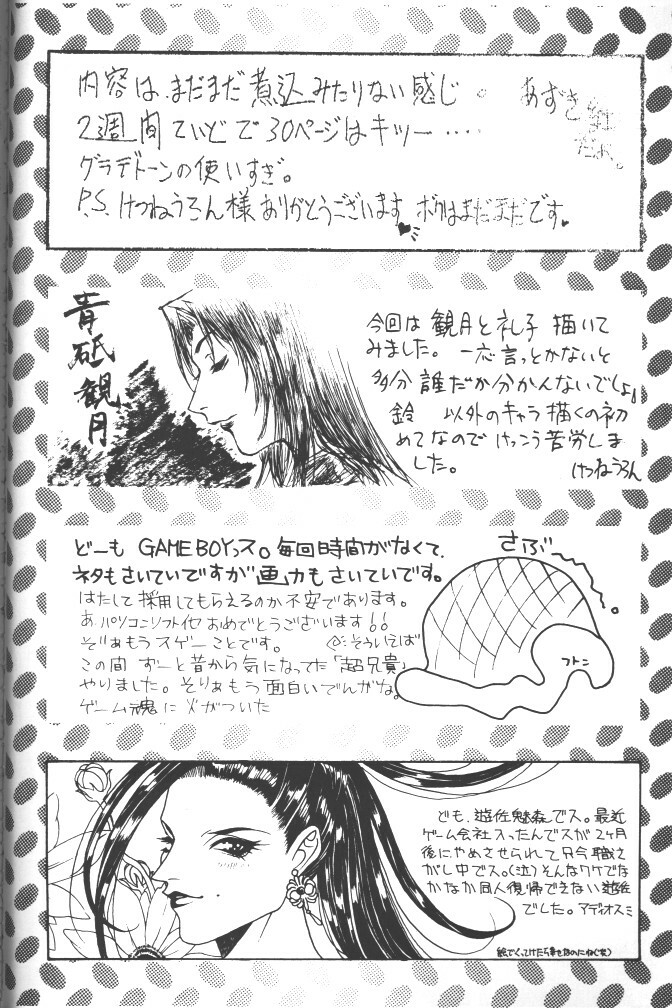 内容は、まだまだ煮込みたりない感じ。
2週間ていどで30ページはキツー‥‥
グラデトーンの使いすぎ。
P.S. けつねうろん様ありがとうございます ボクはまだまだです。
あずき
だよ。
青砥観月
今回は観月と礼子描いて
みました。一応言っとかないと
多分誰だか分かんないでしょ。
鈴 以外のキャラ描くの初
めてなのでけっこう苦労しま
した。
けつねうろん
どーも GAMEBOYっス。毎回時間がなくて、
ネタもさいていですが画力もさいていです。
はたして採用してもらえるのか不安であります。
あ、パソコンソフトイヤおめでとうございます!!
そりゃあもうスゲーことです。
そういえば
この間 ずーと昔から気になってた「超兄貴」
やりました。そりゃあもう面白いでんがな。
ゲーム魂に火がついた
さぶー
フトン
ども、遊佐魅森でス。最近
ゲーム会社入ったんでスが2ヶ月
後にやめさせられて只今職さ
がし中でス。(泣)そんなワケでな
かなか同人復帰できない遊佐
でした。アディオス